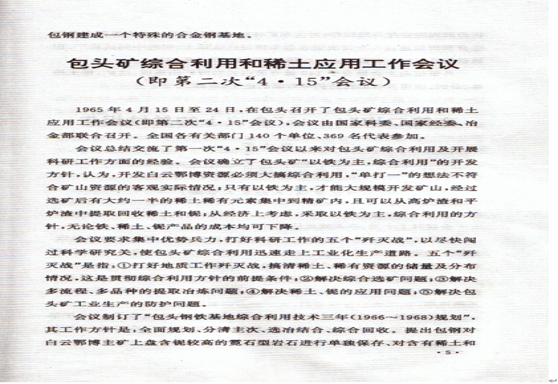 包钢建成一个特殊的合金钢基地。
包头矿综合利用和稀土应用工作会议
(即第二次“4·15”会议)
1965年4月15日至24日,在包头召开了包头矿综合利用和稀土
应用工作会议(即第二次“4·15”会议),会议由国家科委、国家经委、冶
金部联合召开。全国各有关部门140个单位、369名代表参加。
会议总结交流了第一次“4·15”会议以来对包头矿综合利用及开展
科研工作方面的经验。会议确立了包头矿“以铁为主,综合利用”的开发
方针,认为,开发白云鄂博资源必须大搞综合利用,“单打一”的想法不符
合矿山资源的客观实际情况;只有以铁为主,才能大规模开发矿山,经过
选矿后有大约一半的稀土稀有元素集中到精矿内,且可以从高炉渣和平
炉渣中提取回收稀土和铌;从经济上考虑,采取以铁为主,综合利用的方
针,无论铁、稀土、铌产品的成本均可下降。
会议要求集中优势兵力,打好科研工作的五个“歼灭战”,以尽快闯
过科学研究关,使包头矿综合利用迅速走上工业化生产道路。五个“歼
灭战”是指,①打好地质工作歼灭战,搞清稀土、稀有资源的储量及分布
情况,这是贯彻综合利用方针的前提条件;②解决综合选矿问题;③解决
多流程、多品种的提取冶炼问题;④解决稀土、铌的应用问题;⑤解决包
头矿工业生产的防护问题。
会议制订了“包头钢铁基地综合利用技术三年(1966~1968)规划”,
其工作方针是,全面规划、分清主次、选冶结合、综合回收。提出包钢对
白云鄂博主矿上盘含铌较高的霓石型岩石进行单独保存、对含有稀土和
·5·